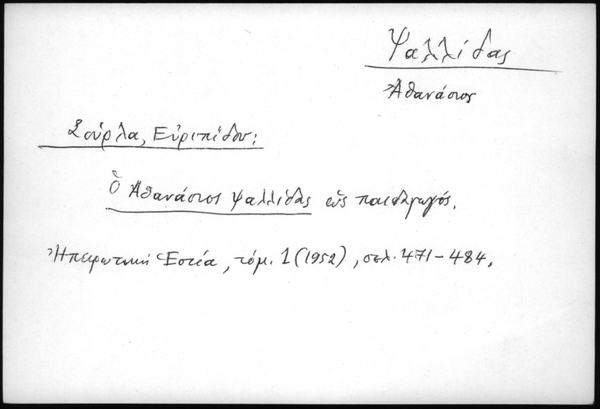 Ψαλλίδας
Ἀθανάσιος
Σούρλα, Εὐριπίδου:
Ὁ Ἀθανάσιος Ψαλλίδας ὡς παιδαγωγός.
Ἠπειρωτική Ἑστία, τόμ. 1 (1952), σελ. 471-484.